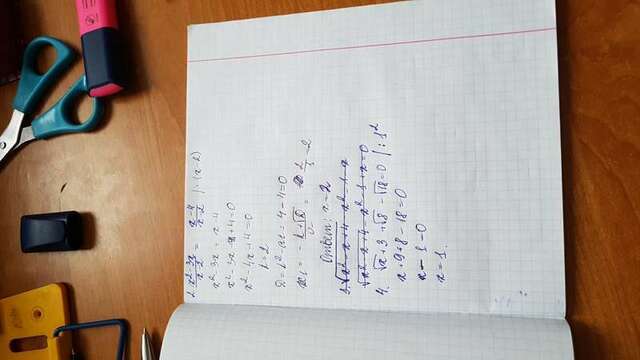 2. x²-3x / x-2 = x-4 / x-2 | · (x-2)
x²-3x = x-4
x²-3x-x+4=0
x²-4x+4=0
k=2
D=k²-ac=4-4=0
x₁ = -k+√D / a = 2 / 1 = 2
Ответ: x=2
3. √x²-x+4 - x²-1-x
√x²-x+4 - x²-1+x=0
4. √x+3+√8-√18=0 | : 1²
x+9+8-18=0
x-1-0
x=1.